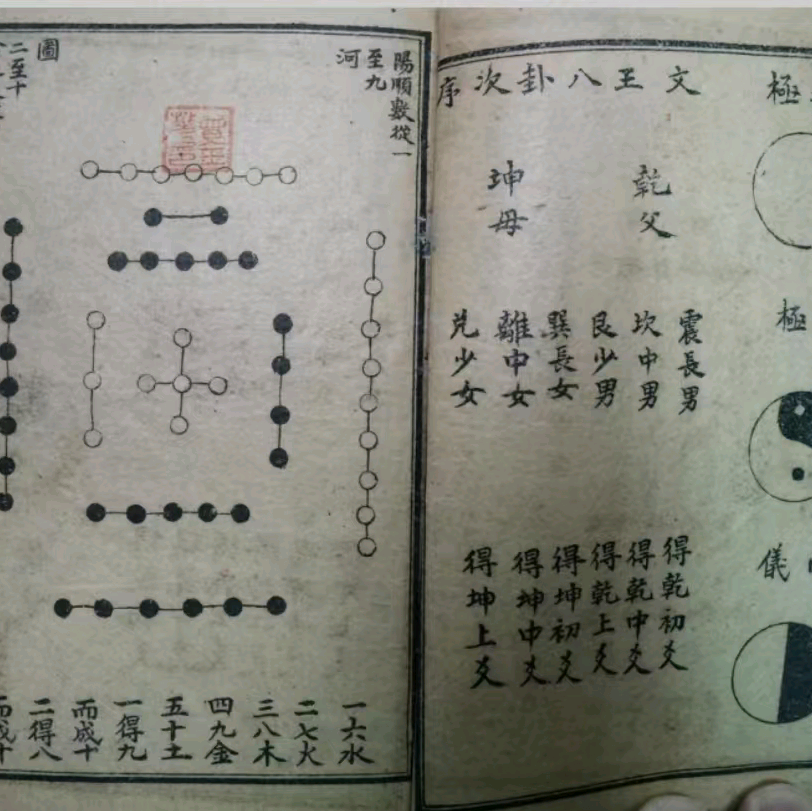 極
極
儀
文王八卦次序
乾父
坤母
震長男
坎中男
艮少男
巽長女
離中女
兌少女
得乾初爻
得乾中爻
得乾上爻
得坤初爻
得坤中爻
得坤上爻
陽順數從一
至九
河
圖
二至十
一六水
二七火
三八木
四九金
五十土
一得九
而成十
二得八
而成十